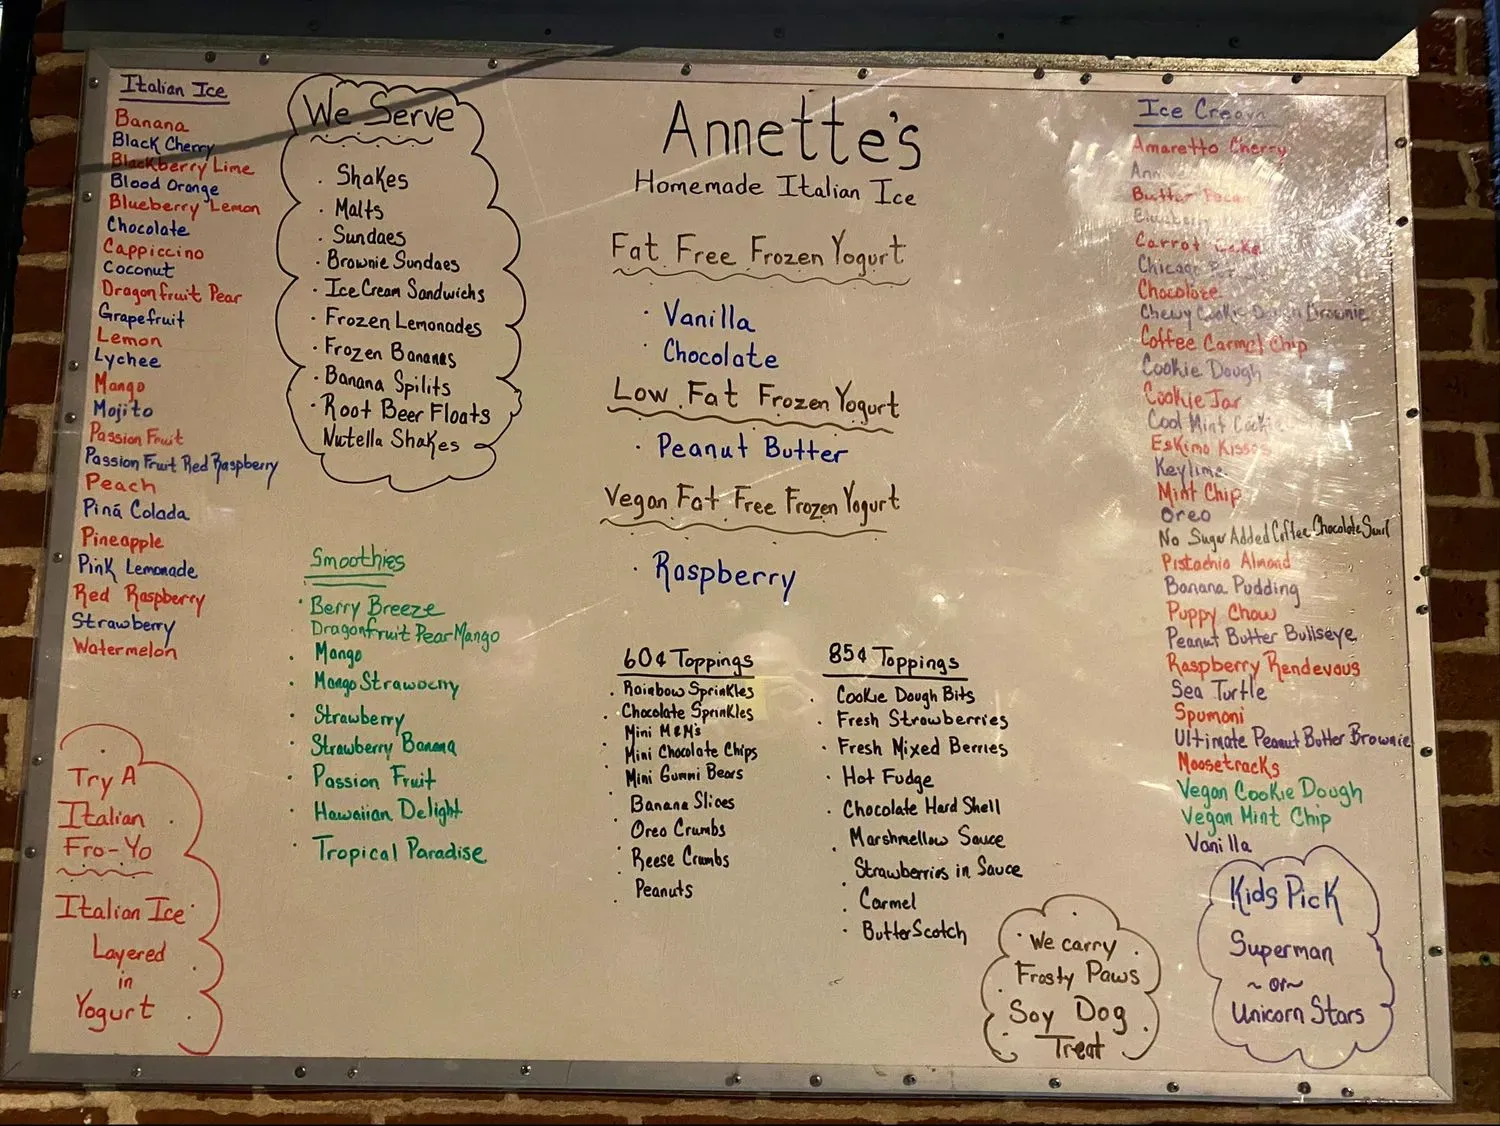 Italian Ice
Banana
Black Cherry
Blackberry Lime
Blood Orange
Blueberry Lemon
Chocolate
Cappiccino
Coconut
Dragonfruit Pear
Grapefruit
Lemon
Lychee
Mango
Mojito
Passion Fruit
Passion Fruit Red Raspberry
Peach
Piná Colada
Pineapple
Pink Lemonade
Red Raspberry
Strawberry
Watermelon
Try A
Italian
Fro-Yo
Italian Ice
Layered
in
Yogurt
We Serve
· Shakes
· Malts
· Sundaes
· Brownie Sundaes
· Ice Cream Sandwichs
· Frozen Lemonades
· Frozen Bananas
· Banana Spilits
· Root Beer Floats
Nutella Shakes
Smoothies
· Berry Breeze
Dragonfruit Pear Mango
· Mango
· Mango Strawberry
· Strawberry
· Strawberry Banana
· Passion Fruit
· Hawaiian Delight
· Tropical Paradise
Annette's
Homemade Italian Ice
Fat Free Frozen Yogurt
· Vanilla
· Chocolate
Low Fat Frozen Yogurt
· Peanut Butter
Vegan Fat Free Frozen Yogurt
· Raspberry
60¢ Toppings
· Rainbow Sprinkles
· Chocolate Sprinkles
· Mini M&M's
· Mini Chocolate Chips
· Mini Gummi Bears
· Banana Slices
· Oreo Crumbs
· Reese Crumbs
· Peanuts
85¢ Toppings
· Cookie Dough Bits
· Fresh Strawberries
· Fresh Mixed Berries
· Hot Fudge
· Chocolate Hard Shell
· Marshmellow Sauce
· Strawberries in Sauce
· Carmel
· ButterScotch
· We carry
Frosty Paws
Soy Dog
Treat
Ice Cream
Amaretto Cherry
Butter Pecan
Carrot Cake
Chicago
Chocolate
Chewy Cookie Dough Brownie
Coffee Carmel Chip
Cookie Dough
Cookie Jar
Cool Mint Cookie
Eskimo Kisses
Keylime
Mint Chip
Oreo
No Sugar Added Coffee Chocolate
Pistachio Almond
Banana Pudding
Puppy Chow
Peanut Butter Bullseye
Raspberry Rendevous
Sea Turtle
Spumoni
Ultimate Peanut Butter Brownie
Moosetracks
Vegan Cookie Dough
Vegan Mint Chip
Vanilla
Kids Pick
Superman
~ or ~
Unicorn Stars